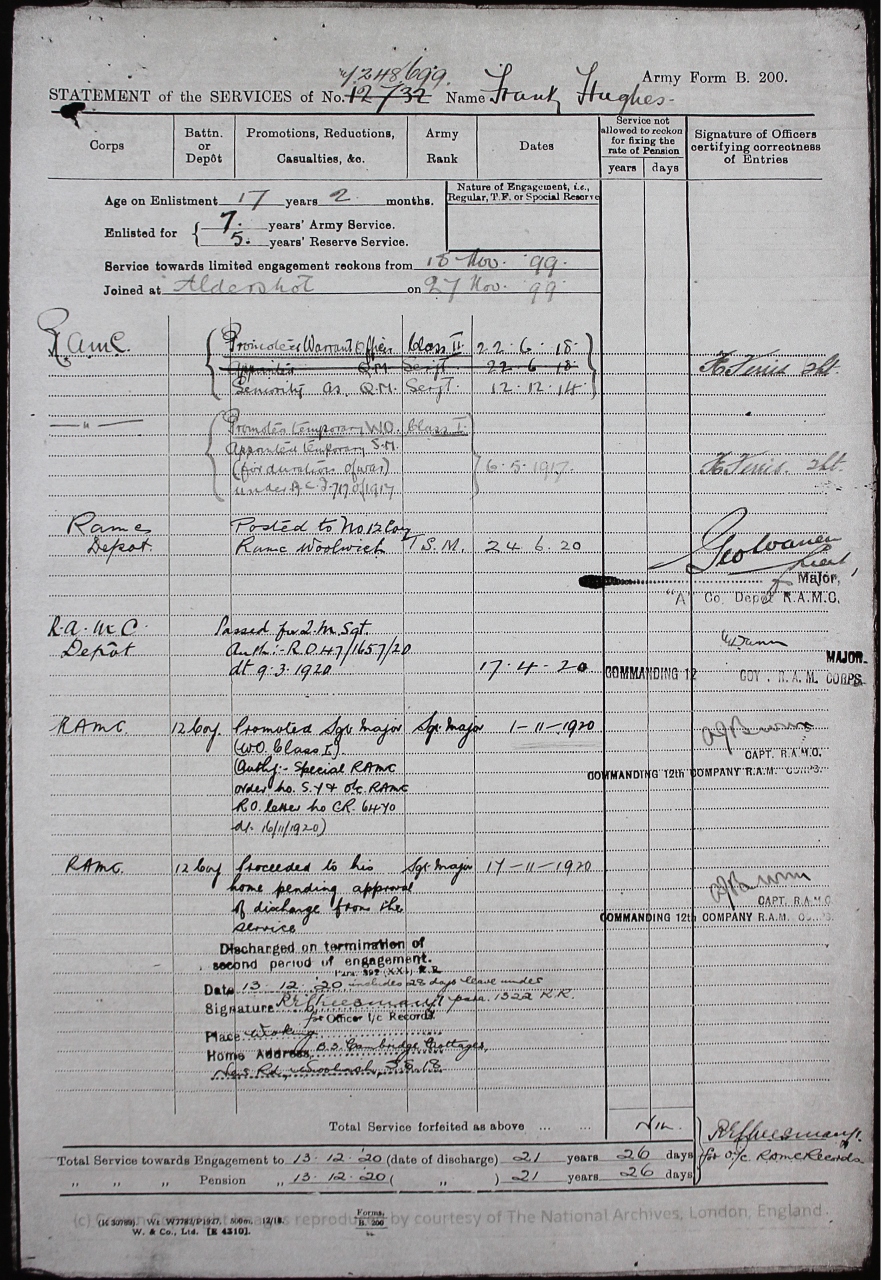 7248699.
Army Form B. 200.
STATEMENT of the SERVICES of No. 12732 Name Frank Hughes
Corps
Battn. or Depôt
Promotions, Reductions, Casualties, &c.
Army Rank
Dates
Service not allowed to reckon for fixing the rate of Pension
years days
Signature of Officers certifying correctness of Entries
Age on Enlistment 17 years 2 months.
Nature of Engagement, i.e., Regular, T.F. or Special Reserve
Enlisted for { 7. years' Army Service.
5. years' Reserve Service.
Service towards limited engagement reckons from 18 Nov. 99.
Joined at Aldershot on 27 Nov. 99
RAMC. Promoted Warrant Officer Class II. 22.6.18
Q.M. Serjt. 22.6.18
Seniority as Q.M. Serjt. 12.12.14
— " — Promoted temporary W.O. Class I.
Appointed temporary S.M.
(for duration of war) 6.5.1917
under A.C.I. 717 of 1917
RAMC Posted to No 12 Coy
Depot. RAMC Woolwich T.S.M. 24.6.20
Major,
"A" Co. Depot R.A.M.C.
R.A.M.C. Passed for Q.M. Sgt.
Depôt Auth:- R.O.47/1657/20
dt 9.3.1920 17.4.20
MAJOR.
COMMANDING 12 COY. R.A.M. CORPS.
RAMC. 12 Coy. Promoted Sgt Major Sgt Major 1-11-1920
(W.O. Class I)
(Authy:- Special RAMC
order no. o/c. RAMC
R.O. letter no CR. 6470
dt. 16/11/1920)
CAPT. R.A.M.C.
COMMANDING 12th COMPANY R.A.M. CORPS.
RAMC. 12 Coy Proceeded to his Sgt Major 17-11-1920
home pending approval
of discharge from the
service
CAPT. R.A.M.C.
COMMANDING 12th COMPANY R.A.M. CORPS.
Discharged on termination of
second period of engagement.
Para. 392 (XXI) K.R.
Date 13.12.'20 includes 28 days leave under
Signature para. 1322 K.R.
for Officer i/c Records
Place Woking
Home Address 33 Cambridge Cottages,
Rd, Woolwich, S.E.18.
Total Service forfeited as above ... ... Nil.
Total Service towards Engagement to 13.12.'20 (date of discharge) 21 years 26 days
" " Pension " 13.12.'20 ( " ) 21 years 26 days
for o/c RAMC Records
W. & Co., Ltd. [E 4310].
Forms/B. 200
(c) Crown Copyright Images reproduced by courtesy of The National Archives, London, England